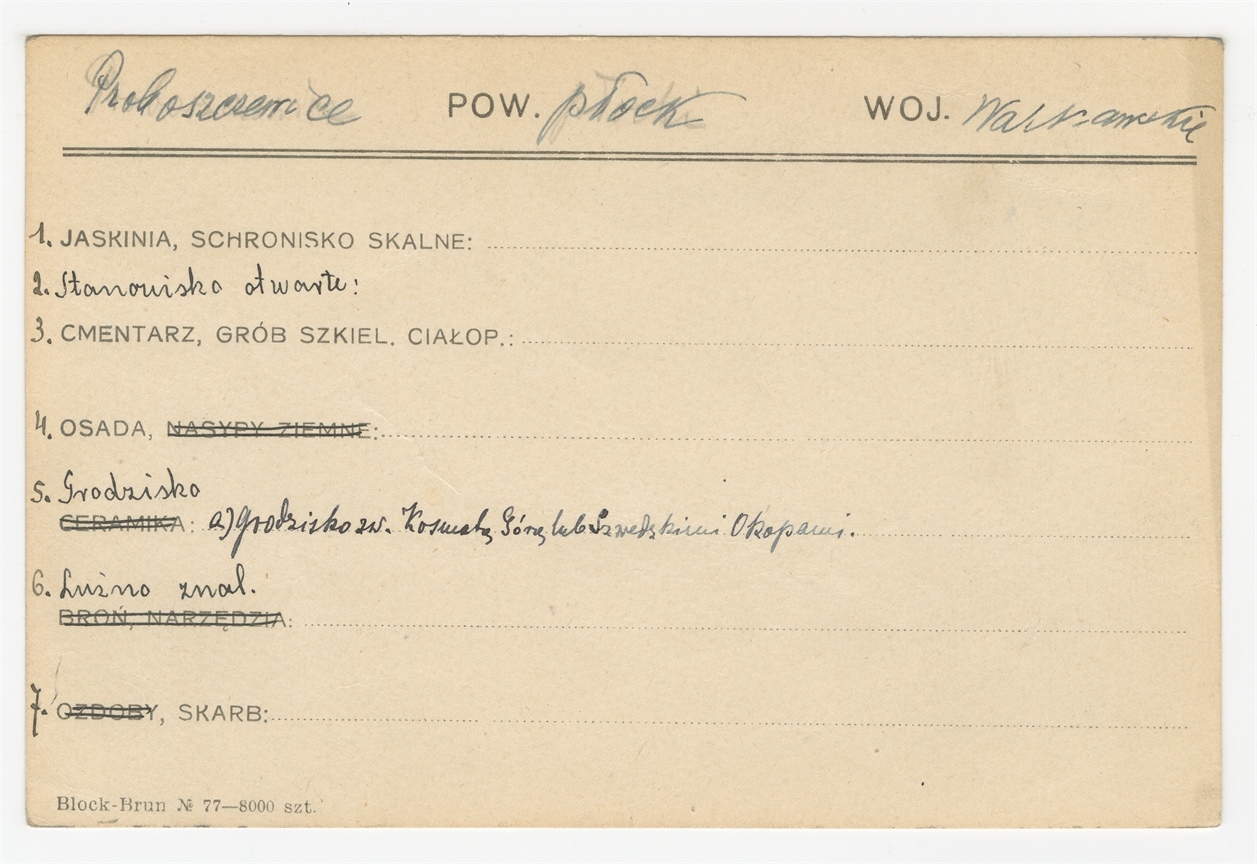 Proboszczewice POW. płock WOJ. Warszawskie
1. JASKINIA, SCHRONISKO SKALNE:
2. Stanowisko otwarte:
3. CMENTARZ, GRÓB SZKIEL. CIAŁOP.:
4. OSADA, NASYPY ZIEMNE:
5. Grodzisko
CERAMIKA: a) Grodzisko zw. Kosmatą Górą lub Szwedzkimi Okopami.
6. Luźno znal.
BROŃ, NARZĘDZIA:
7. OZDOBY, SKARB:
Block-Brun № 77—8000 szt.